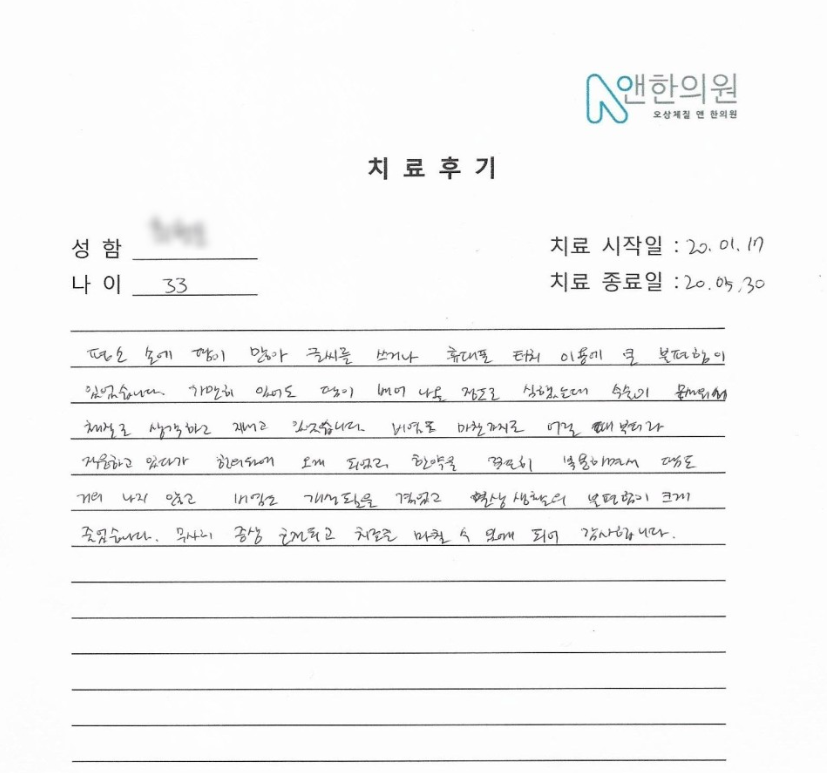 앤한의원
오상체질 앤 한의원
치료후기
성함
나이 33
치료 시작일 : 20.01.17
치료 종료일 : 20.05.30
평소 손에 땀이 많아 글씨를 쓰거나 휴대폰 터치 이용에 큰 불편함이
있었습니다. 가만히 있어도 땀이 배어 나올 정도로 심했는데
체질로 생각하고 지내고 있었습니다. 비염도 마찬가지로 어릴 때부터라
적응하고 있다가 한의원에 오게 되었고, 한약을 꾸준히 복용하면서 땀도
거의 나지 않고 비염도 개선됨을 겪었고 일상생활의 불편함이 크게
줄었습니다. 무사히 증상 호전되고 치료를 마칠 수 있게 되어 감사합니다.